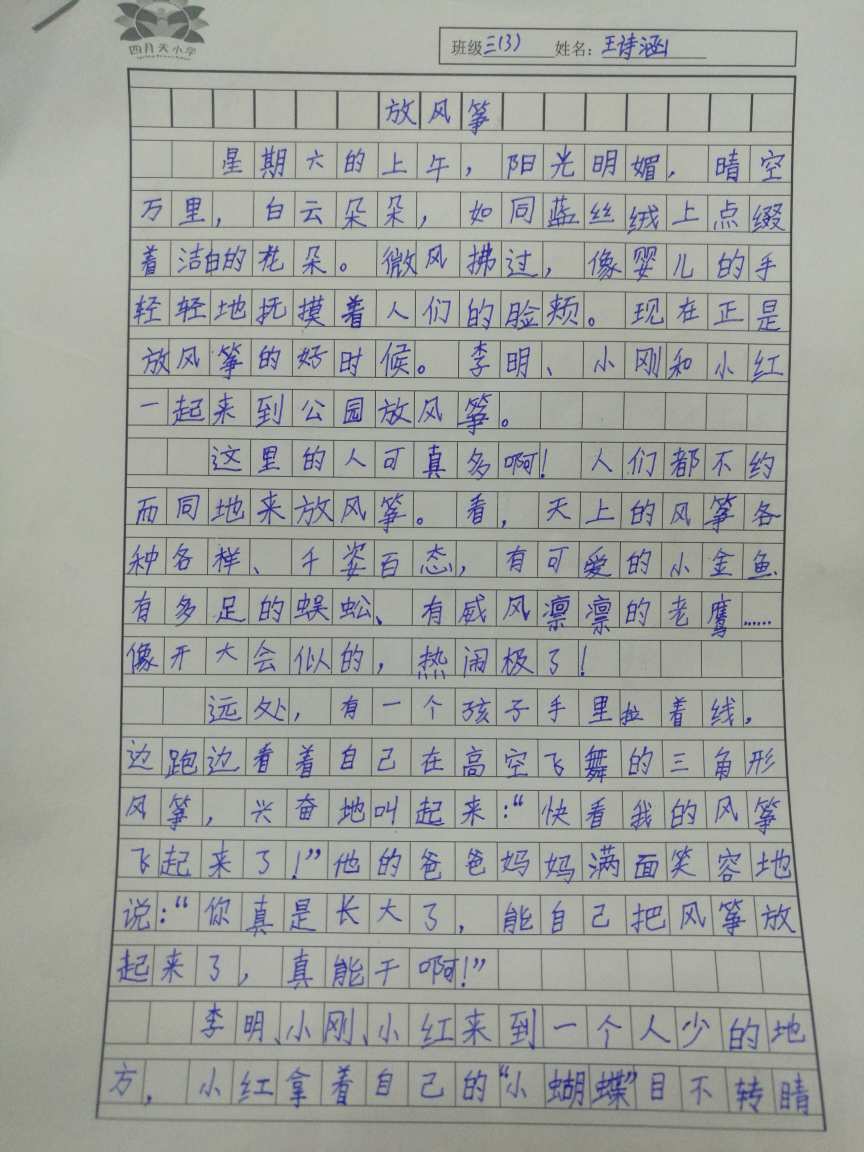 四月天小学
班级三(3) 姓名：王诗涵
放风筝
星期六的上午，阳光明媚，晴空
万里，白云朵朵，如同蓝丝绒上点缀
着洁白的花朵。微风拂过，像婴儿的手
轻轻地抚摸着人们的脸颊。现在正是
放风筝的好时候。李明、小刚和小红
一起来到公园放风筝。
这里的人可真多啊！人们都不约
而同地来放风筝。看，天上的风筝各
种各样、千姿百态，有可爱的小金鱼
有多足的蜈蚣、有威风凛凛的老鹰……
像开大会似的，热闹极了！
远处，有一个孩子手里拉着线，
边跑边看着自己在高空飞舞的三角形
风筝，兴奋地叫起来：“快看我的风筝
飞起来了！”他的爸爸妈妈满面笑容地
说：“你真是长大了，能自己把风筝放
起来了，真能干啊！”
李明、小刚、小红来到一个人少的地
方，小红拿着自己的“小蝴蝶”目不转睛